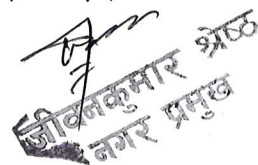 जीवनकुमार श्रेष्ठ
नगर प्रमुख